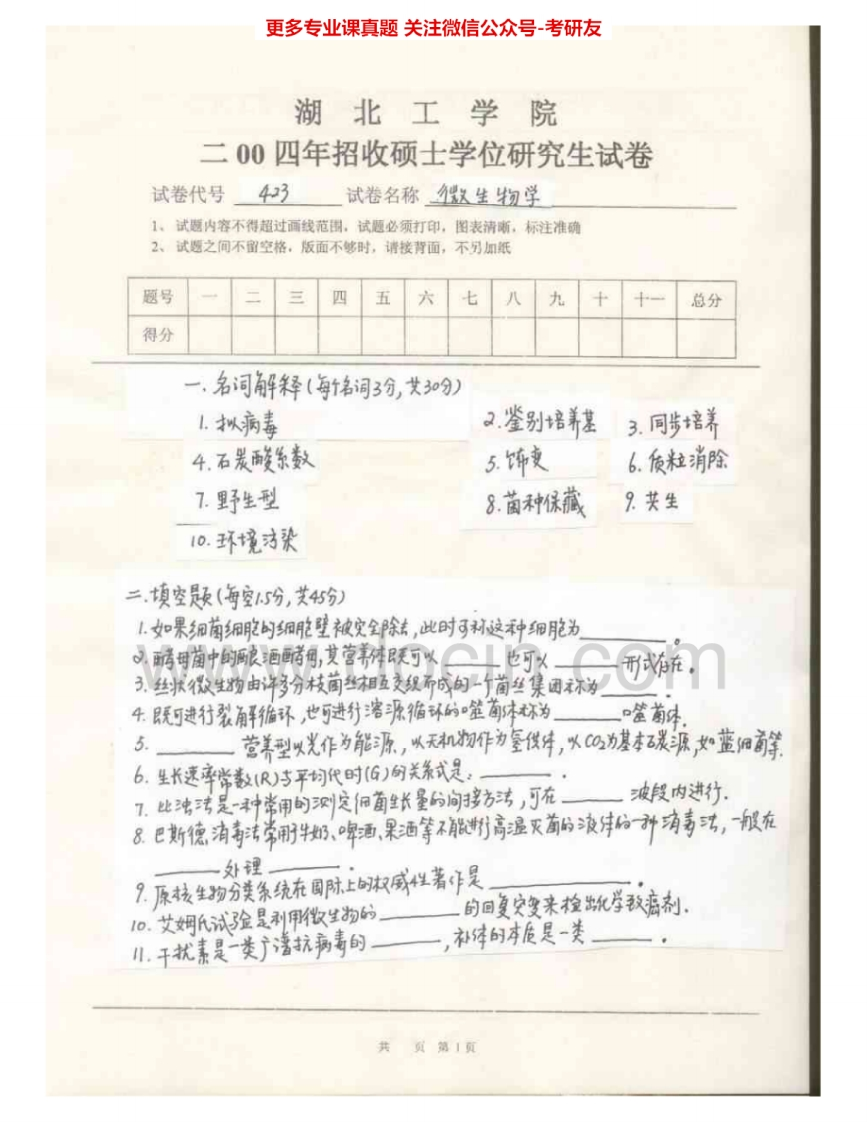 更多专业课真题 关注微信公众号-考研友
湖 北 工 学 院
二00四年招收硕士学位研究生试卷
试卷代号 423 试卷名称 微生物学
1、试题内容不得超过画线范围，试题必须打印，图表清晰，标注准确
2、试题之间不留空格，版面不够时，请接背面，不另加纸
题号 一 二 三 四 五 六 七 八 九 十 十一 总分
得分
一.名词解释(每个名词3分,共30分)
1.拟病毒 2.鉴别培养基 3.同步培养
4.石炭酸系数 5.饰变 6.质粒消除
7.野生型 8.菌种保藏 9.共生
10.环境污染
二.填空题(每空1.5分,共45分)
1.如果细菌细胞的细胞壁被完全除去,此时可称这种细胞为______。
2.酵母菌中的酿酒酵母,其营养体既可以______也可以______形式存在。
3.丝状微生物由许多分枝菌丝相互交织而成的一个菌丝集团称为______.
4.既可进行裂解循环,也可进行溶源循环的噬菌体称为______噬菌体.
5.______营养型以光作为能源,以无机物作为氢供体,以CO2为基本碳源,如蓝细菌等.
6.生长速率常数(R)与平均代时(G)的关系式是:______.
7.比浊法是一种常用的测定细菌生长量的间接方法,可在______波段内进行.
8.巴斯德消毒法常用于牛奶、啤酒、果酒等不能进行高温灭菌的液体的一种消毒法,一般在
______处理______.
9.原核生物分类系统在国际上的权威性著作是______.
10.艾姆氏试验是利用微生物的______的回复突变来检出化学致癌剂.
11.干扰素是一类广谱抗病毒的______,补体的本质是一类______.
www.docin.com
共 页 第1页